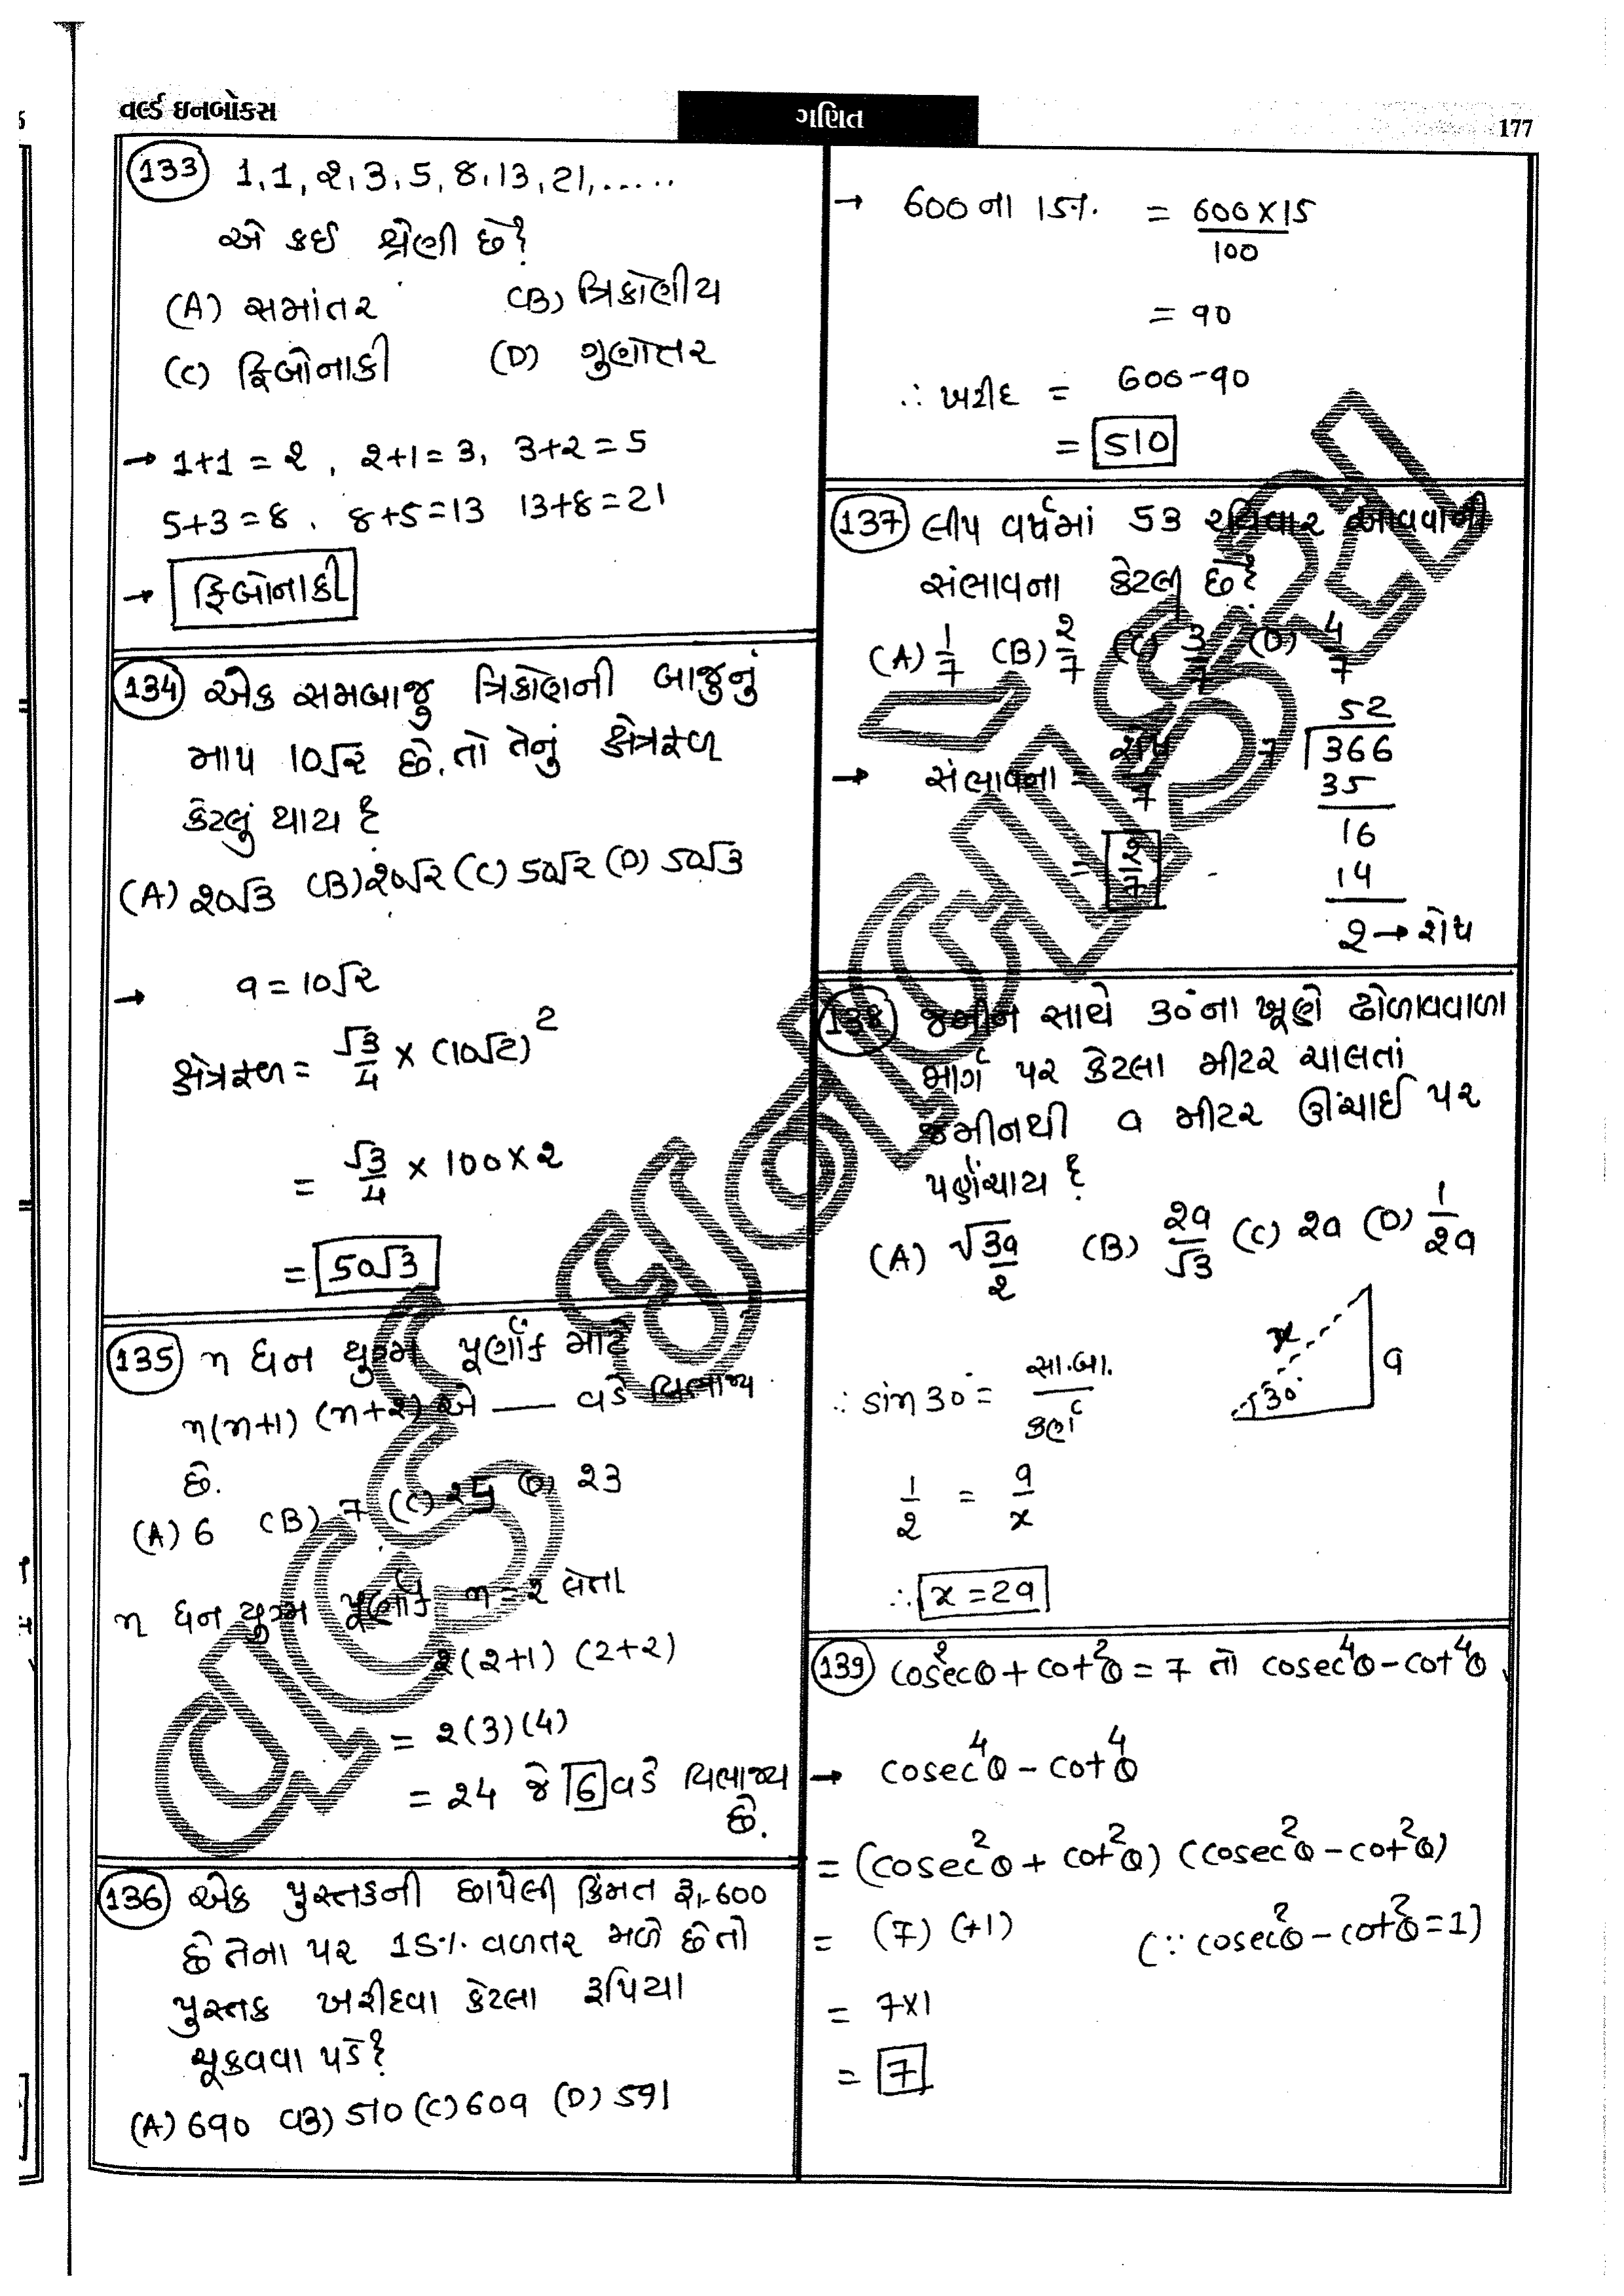 વર્લ્ડ ઇનબૉક્સ
ગણિત
177
(133) 1, 1, ૨, 3, 5, 8, 13, 21, .....
એ કઈ શ્રેણી છે?
(A) સમાંતર (B) ત્રિકોણીય
(C) ફિબોનાકી (D) ગુણોત્તર
→ 1+1 = ૨ , ૨+1 = 3, 3+૨ = 5
5+3 = 8 , 8+5 = 13 13+8 = 21
→ ફિબોનાકી
(134) એક સમબાજુ ત્રિકોણની બાજુનું
માપ 10√૨ છે. તો તેનું ક્ષેત્રફળ
કેટલું થાય ?
(A) ૨0√3 (B) ૨0√૨ (C) 50√૨ (D) 50√3
→ a = 10√૨
ક્ષેત્રફળ = √3/4 × (10√2)²
= √3/4 × 100 × ૨
= 50√3
(135) n ધન યુગ્મ પૂર્ણાંક માટે
n(n+1) (n+૨) એ ___ વડે વિભાજ્ય
છે.
(A) 6 (B) 7 (C) ૨5 (D) ૨3
n ધન યુગ્મ પૂર્ણાંક n = ૨ લેતા
૨(૨+1) (2+૨)
= ૨(3)(4)
= ૨4 જે 6 વડે વિભાજ્ય
છે.
(136) એક પુસ્તકની છાપેલી કિંમત રૂ.600
છે તેના પર 15% વળતર મળે છે તો
પુસ્તક ખરીદવા કેટલા રૂપિયા
ચૂકવવા પડે?
(A) 690 (B) 510 (C) 609 (D) 591
→ 600 ના 15% = 600×15/100
= 90
∴ ખરીદ = 600-90
= 510
(137) લીપ વર્ષમાં 53 રવિવાર આવવાની
સંભાવના કેટલી છે?
(A) 1/7 (B) ૨/7 (C) 3/7 (D) 4/7
→ સંભાવના = શેષ/7
= ૨/7
52
7 366
35
16
14
૨ → શેષ
(138) જમીન સાથે 30°ના ખૂણે ઢોળાવવાળા
માર્ગ પર કેટલા મીટર ચાલતાં
જમીનથી a મીટર ઊંચાઈ પર
પહોંચાય ?
(A) √3a/૨ (B) ૨a/√3 (C) ૨a (D) 1/૨a
x
a
30°
∴ sin 30° = સા.બા./કર્ણ
1/૨ = a/x
∴ x = 2a
(139) cosec²θ + cot²θ = 7 તો cosec⁴θ - cot⁴θ
→ cosec⁴θ - cot⁴θ
= (cosec²θ + cot²θ) (cosec²θ - cot²θ)
= (7) (+1) (∵ cosec²θ - cot²θ = 1)
= 7×1
= 7